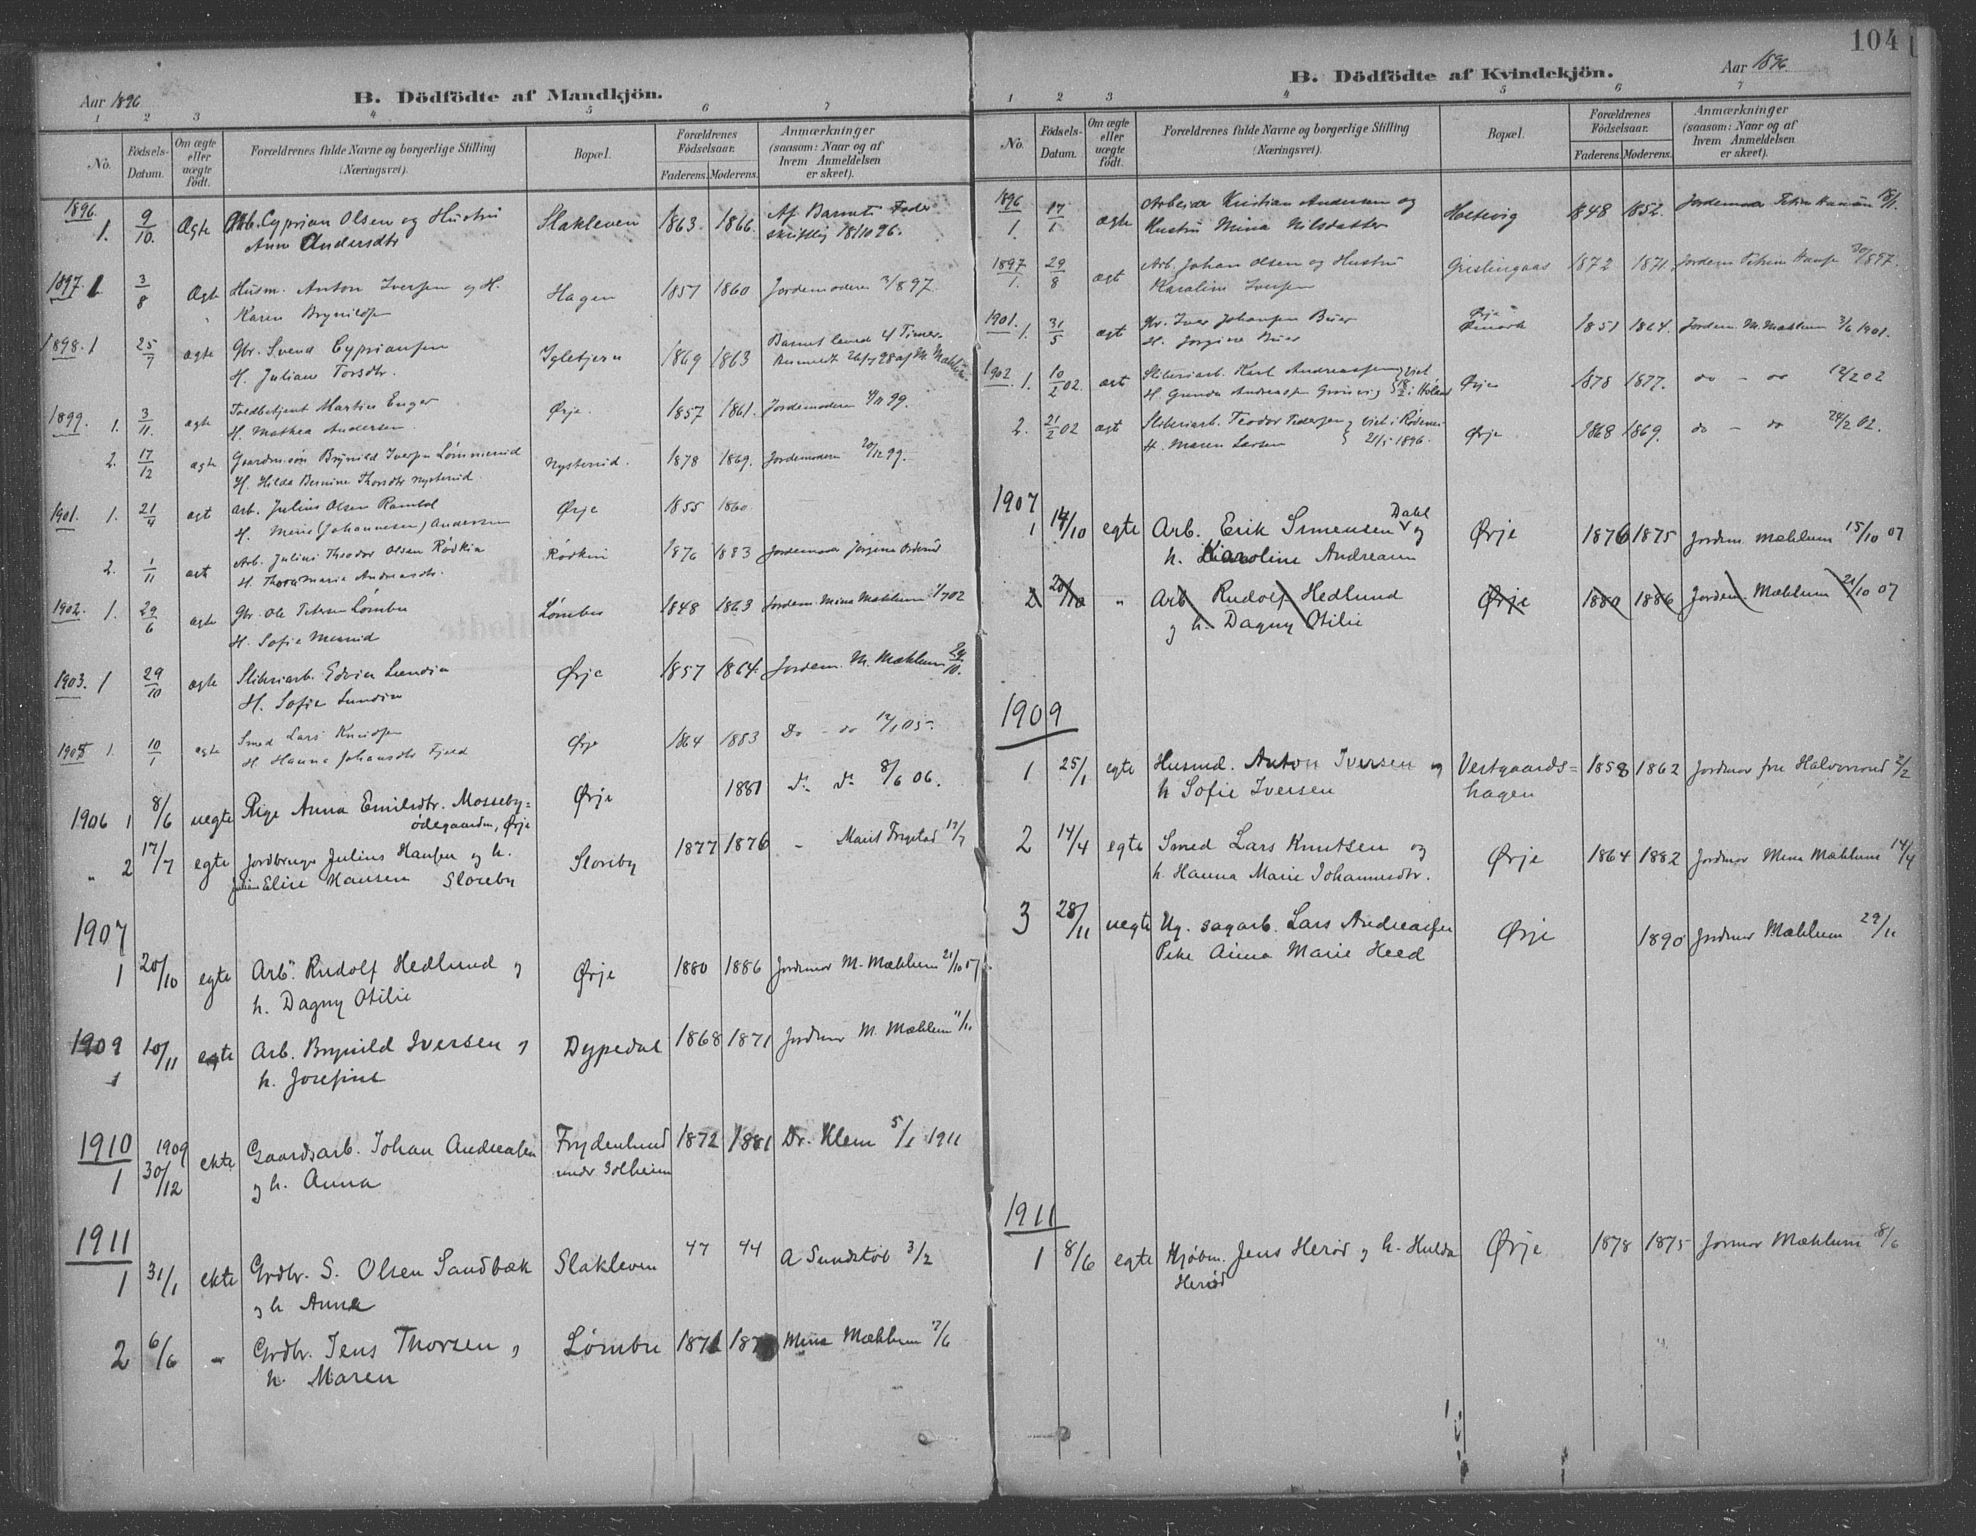 104
Aar 1896
B. Dödfödte af Mandkjön.
1 2 3 4 5 6 7
No.
Födsels-Datum.
Om ægte eller uægte födt.
Forældrenes fulde Navne og borgerlige Stilling
(Næringsvei).
Bopæl.
Forældrenes Födselsaar.
Faderens. Moderens.
Anmærkninger
(saasom: Naar og af
hvem Anmeldelsen
er skeet).
1896. 1. 9/10. Ægte Arb. Cyprian Olsen og Hustru Slakleven 1863. 1866. Af Barnets Fader
Anne Andersdtr skriftlig 18/10 96.
1897. 1. 3/8 Ægte Husm. Anton Iversen og H. Hagen 1857 1860 Jordemoderen 3/8 97.
Karen Brynildsen
1898. 1 25/7 ægte Gbr. Svend Cypriansen Igletjern 1869 1863 Barnet levede 4 Timer.
H. Juliane Torsdtr. Anmeldt 26/7 98 af M. Mæhlum.
1899. 1. 3/11. ægte Toldbetjent Martin Enger Ørje. 1857 1861. Jordemoderen 4/11 99.
H. Mathea Andersen.
2. 17/12 ægte Gaardmsøn Brynild Iversen Lømmenid Nystenid. 1878 1869. Jordemoderen 20/12 99.
H. Hilda Bernine Thorsdtr Nystenid.
1901. 1. 21/4 ægt Arb. Julius Olsen Ramtol Ørje 1855 1860
H. Mine (Johannesen) Andersen
2. 1/11 ægt Arb. Julius Theodor Olsen Rødkin Rödkin 1876 1883 Jordemoder Jørgine
H. Thora Marie Andreasdtr.
1902. 1. 29/6 ægte Gbr. Ole Petersen Lömbu Lömbu 1848 1863 Jordem. Mina Mæhlum 1/7 02
H. Sofie
1903. 1 29/10 ægte Sliberiarb. Edvin Lundin Ørje 1857 1864. Jordem. M. Mæhlum 29/10.
H. Sofie Lundin
1905 1. 10/1 ægte Smed Lars Knudsen Ørje 1864 1883 Do - do 12/1 05.
H. Hanna Johansdtr Fjeld
1906 1 8/6 uegte Pige Anna Emilsdtr. Mosseby- Ørje 1881 do do 8/6 06.
ødegaarden, Ørje
" 2 17/7 egte Jordbruger Julius Hansen og h. Sloreby 1877 1876 - Marit Frystad 17/7
Elise Hansen Sloreby
1907
1 20/10 egte Arb. Rudolf Hedlund og Ørje 1880 1886 Jordmor M. Mæhlum 21/10 07
h. Dagny Otilie
1909 1 10/11 egte Arb. Brynild Iversen og Dypedal 1868 1871 Jordmor M. Mæhlum 11/11
h. Josefine
1910
1 1909 30/12 ekte Gaardsarb. Johan Andreasen Frydenlund 1872 1881 Dr. Klem 5/1 1911
og h. Anna under Solheim
1911
1 31/1 ekte Grdbr. S. Olsen Sandbæk Slakleven 47 44 A Sundstøl 3/2
og h Anna
2 6/6 - Grdbr. Jens Thorsen og Lömbu 1871 Mina Mæhlum 7/6
h. Maren
Aar 1896.
B. Dödfödte af Kvindekjön.
1 2 3 4 5 6 7
No.
Födsels-Datum.
Om ægte eller uægte födt.
Forældrenes fulde Navne og borgerlige Stilling
(Næringsvei).
Bopæl.
Forældrenes Födselsaar.
Faderens. Moderens.
Anmærkninger
(saasom: Naar og af
hvem Anmeldelsen
er skeet).
1896 1 17/1 ægte Arbeider Kristian Andersen og Holtevig 1848 1852. Jordemoder
Hustru Mina Nilsdatter
1897 1. 29/8 ægt Arb. Johan Olsen og Hustru Gristingaas 1872 1871. Jordem. 30/8 97.
Karoline Iversen
1901. 1. 31/5 ægt Gr. Iver Johansen Buer Ørje 1851 1864. Jordem. M. Mæhlum 3/6 1901.
H. Jorgine Buer
1902. 1. 10/2 02. ægt Sliberiarb. Karl Andreassen viet Ørje 1878 1877. do - do 12/2 02
H. Gunda Andreassen i Höland
2. 21/2 02 ægt Sliberiarb. Teodor Pedersen viet i Rødenes Ørje 1868 1869. do - do 24/2 02.
H. Maren Larsen 21/5 1896.
1907
1 14/10 egte Arb. Erik Simensen Dahl og Ørje 1876 1875 Jordem. Mæhlum 15/10 07
h. Karoline Andreasen
2 20/10 " Arb Rudolf Hedlund Ørje 1880 1886 Jordem. Mæhlum 21/10 07
og h. Dagny Otilie
1909
1 25/1 egte Husmd. Anton Iversen og Vestgaards- 1858 1862 Jordmor fru Halvorsrud 2/2
h Sofie Iversen hagen
2 14/4 egte Smed Lars Knutsen og Ørje 1864 1882 Jordmor Mina Mæhlum 14/4
h. Hanna Marie Johannesdtr.
3 28/11 uegte Ug. sagarb. Lars Andreassen Ørje 1890 Jordmor Mæhlum 29/11
Pike Anna Marie Heed
1911
1 8/6 egte Kjøbm. Jens Herød og h. Hulda Ørje 1878 1875 Jormor Mæhlum 8/6
Herød